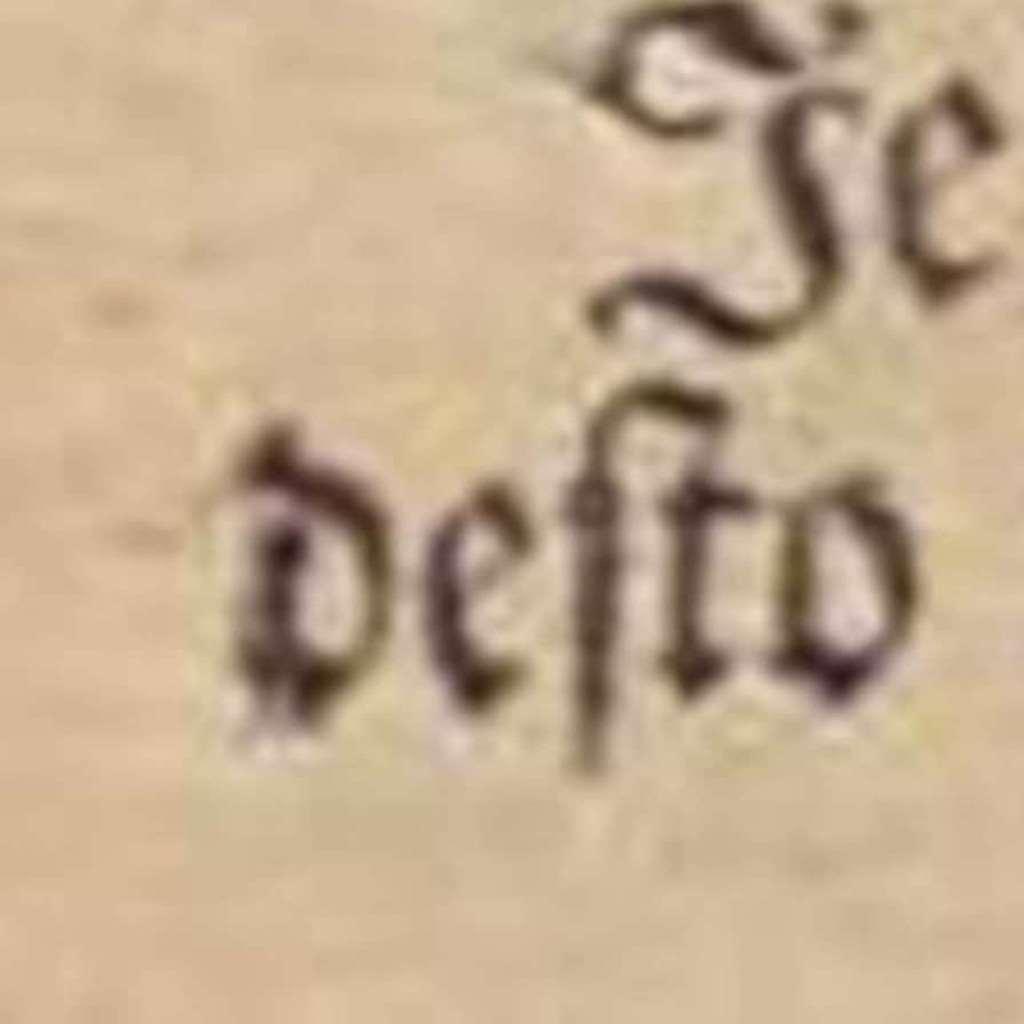 Je
deſto